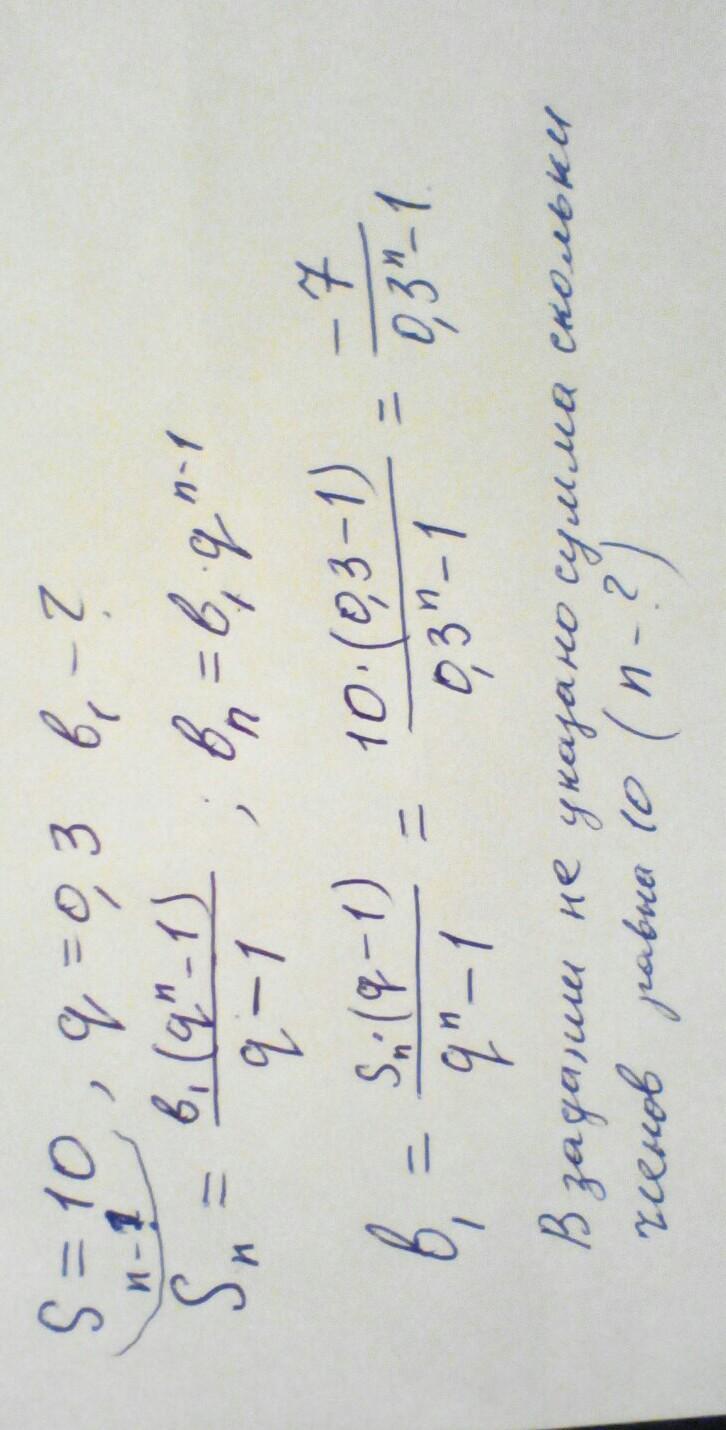 S = 10, q = 0,3 в₁ - ?
n - ?
Sₙ = в₁(qⁿ-1) / q-1 ; вₙ = в₁·qⁿ⁻¹
в₁ = Sₙ·(q-1) / qⁿ-1 = 10·(0,3-1) / 0,3ⁿ-1 = -7 / 0,3ⁿ-1
В задании не указано сумма скольки
членов равна 10 (n-?)